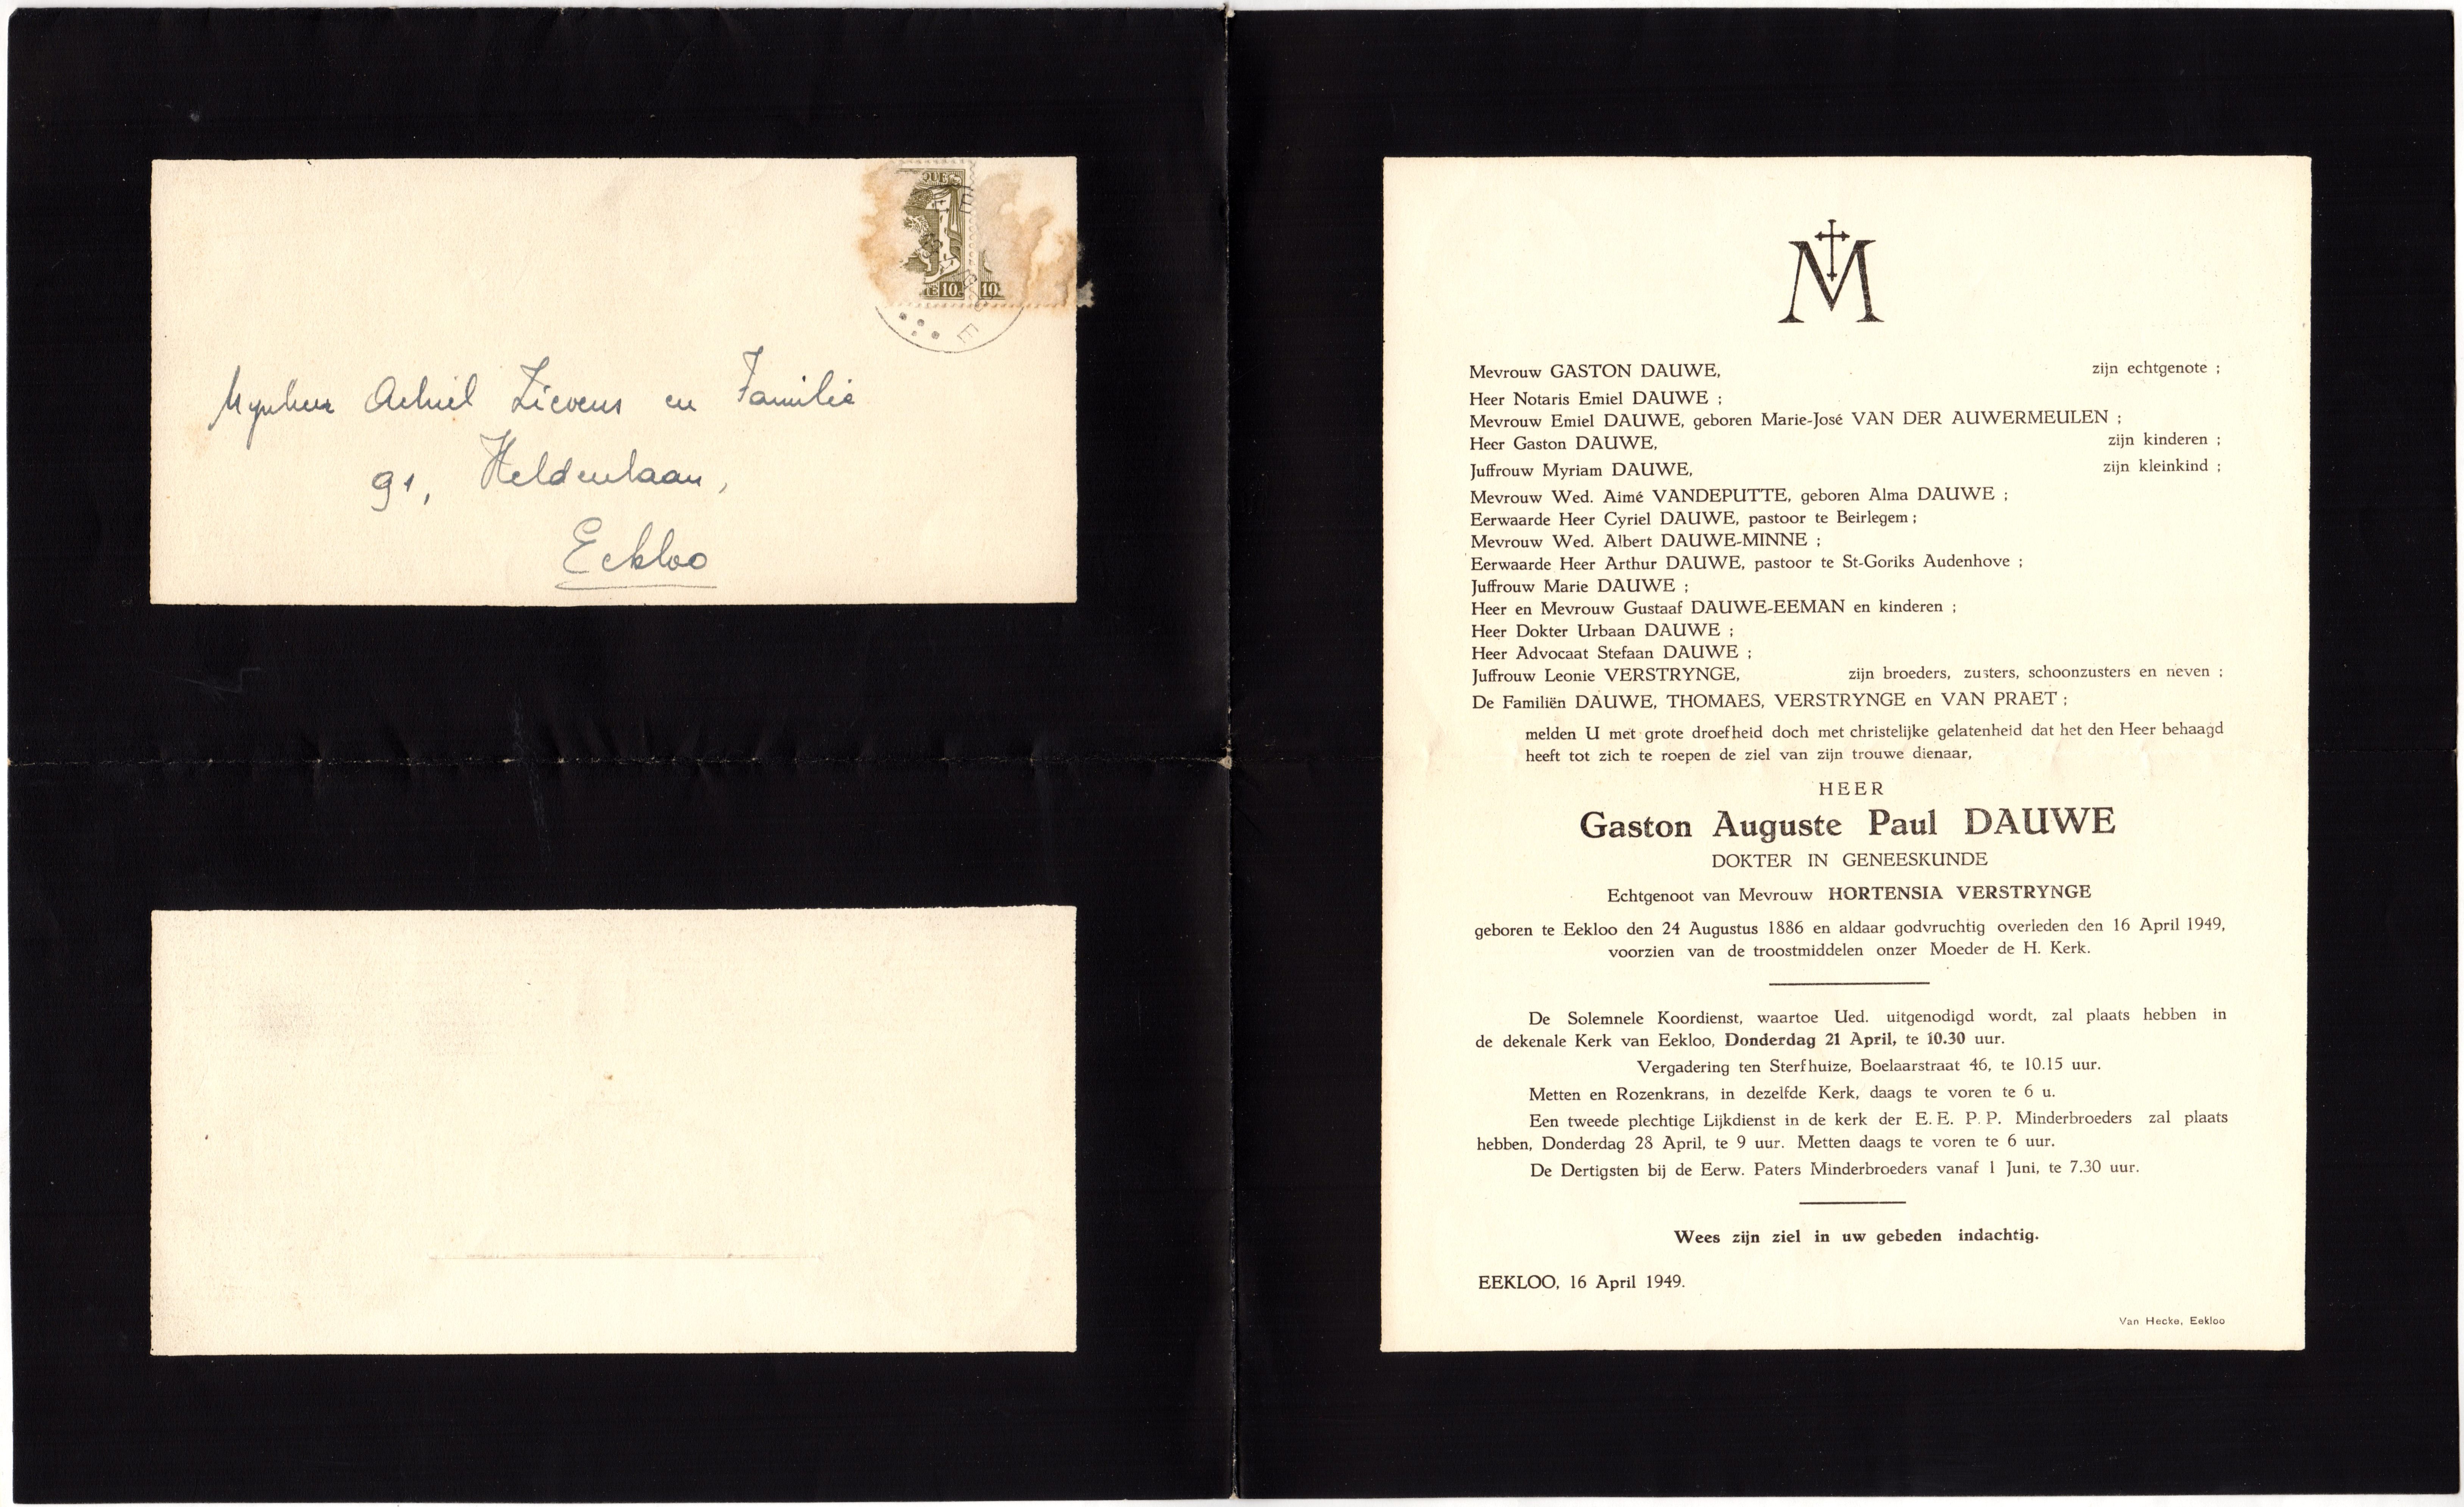 QUE
10
10
E
E
Mynheer Achiel Lievens en Familie
91, Heldenlaan,
Eekloo
M
Mevrouw GASTON DAUWE, zijn echtgenote ;
Heer Notaris Emiel DAUWE ;
Mevrouw Emiel DAUWE, geboren Marie-José VAN DER AUWERMEULEN ;
Heer Gaston DAUWE, zijn kinderen ;
Juffrouw Myriam DAUWE, zijn kleinkind ;
Mevrouw Wed. Aimé VANDEPUTTE, geboren Alma DAUWE ;
Eerwaarde Heer Cyriel DAUWE, pastoor te Beirlegem ;
Mevrouw Wed. Albert DAUWE-MINNE ;
Eerwaarde Heer Arthur DAUWE, pastoor te St-Goriks Audenhove ;
Juffrouw Marie DAUWE ;
Heer en Mevrouw Gustaaf DAUWE-EEMAN en kinderen ;
Heer Dokter Urbaan DAUWE ;
Heer Advocaat Stefaan DAUWE ;
Juffrouw Leonie VERSTRYNGE, zijn broeders, zusters, schoonzusters en neven ;
De Familiën DAUWE, THOMAES, VERSTRYNGE en VAN PRAET ;
melden U met grote droefheid doch met christelijke gelatenheid dat het den Heer behaagd
heeft tot zich te roepen de ziel van zijn trouwe dienaar,
HEER
Gaston Auguste Paul DAUWE
DOKTER IN GENEESKUNDE
Echtgenoot van Mevrouw HORTENSIA VERSTRYNGE
geboren te Eekloo den 24 Augustus 1886 en aldaar godvruchtig overleden den 16 April 1949,
voorzien van de troostmiddelen onzer Moeder de H. Kerk.
De Solemnele Koordienst, waartoe Ued. uitgenodigd wordt, zal plaats hebben in
de dekenale Kerk van Eekloo, Donderdag 21 April, te 10.30 uur.
Vergadering ten Sterfhuize, Boelaarstraat 46, te 10.15 uur.
Metten en Rozenkrans, in dezelfde Kerk, daags te voren te 6 u.
Een tweede plechtige Lijkdienst in de kerk der E. E. P. P. Minderbroeders zal plaats
hebben, Donderdag 28 April, te 9 uur. Metten daags te voren te 6 uur.
De Dertigsten bij de Eerw. Paters Minderbroeders vanaf 1 Juni, te 7.30 uur.
Wees zijn ziel in uw gebeden indachtig.
EEKLOO, 16 April 1949.
Van Hecke, Eekloo